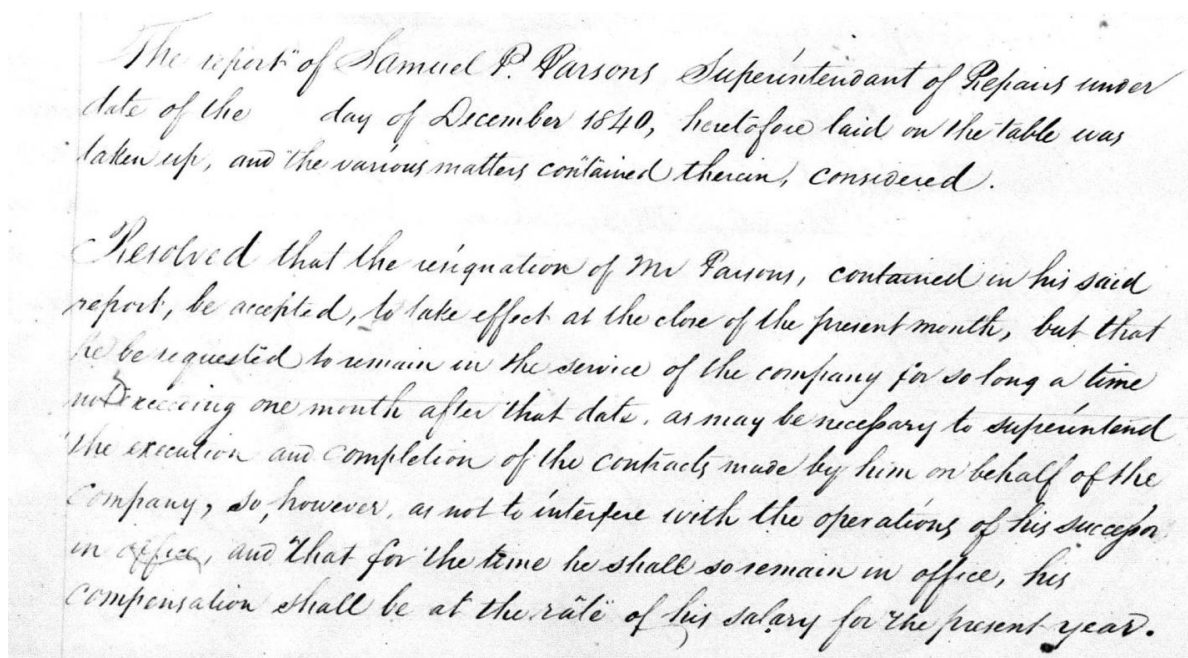 The report of Samuel P. Parsons Superintendant of Repairs under
date of the day of December 1840, heretofore laid on the table was
taken up, and the various matters contained therein, considered.
Resolved that the resignation of Mr Parsons, contained in his said
report, be accepted, to take effect at the close of the present month, but that
he be requested to remain in the service of the company for so long a time
not exceeding one month after that date, as may be necessary to superintend
the execution and completion of the contracts made by him on behalf of the
company, so, however, as not to interfere with the operations of his successor
in office, and that for the time he shall so remain in office, his
compensation shall be at the rate of his salary for the present year.